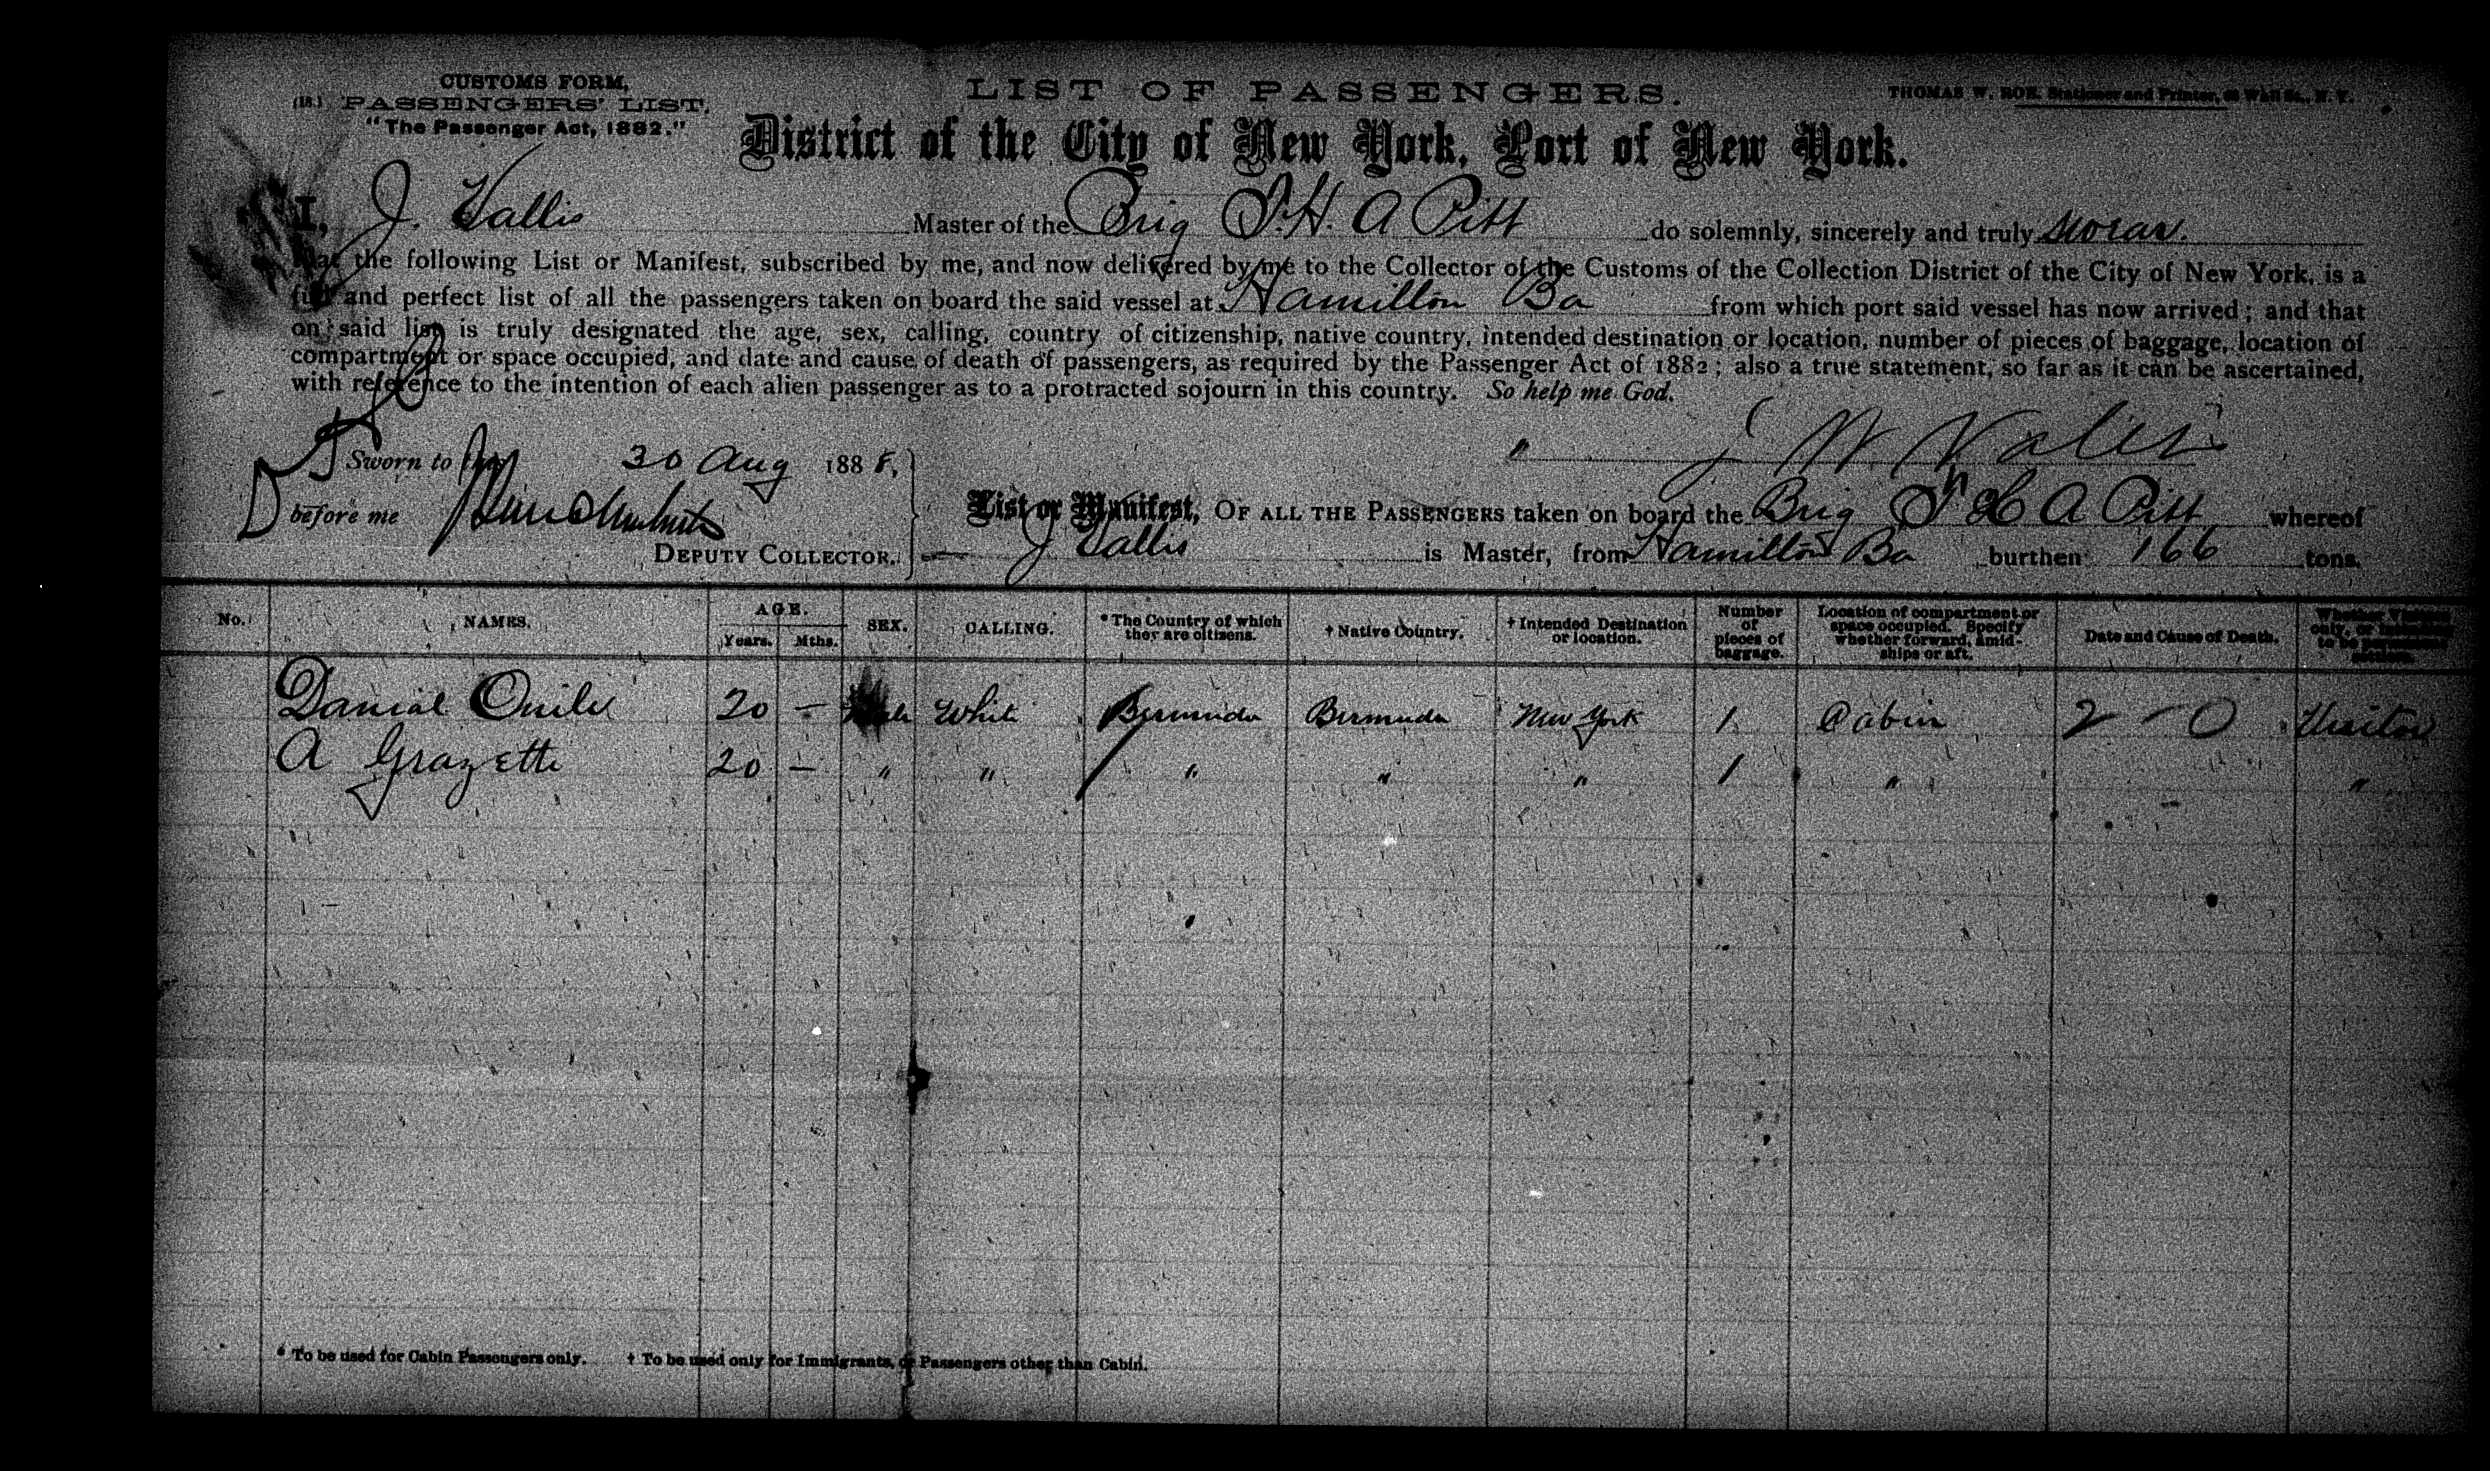 CUSTOMS FORM,
(18.) PASSENGERS' LIST.
"The Passenger Act, 1882."
LIST OF PASSENGERS.
THOMAS W. ROE, Stationer and Printer, Wall St., N. Y.
District of the City of New York, Port of New York.
I, J. Vallis Master of the Brig T. H. A Pitt do solemnly, sincerely and truly swear
that the following List or Manifest, subscribed by me, and now delivered by me to the Collector of the Customs of the Collection District of the City of New York, is a
full and perfect list of all the passengers taken on board the said vessel at Hamilton Ba from which port said vessel has now arrived; and that
on said list is truly designated the age, sex, calling, country of citizenship, native country, intended destination or location, number of pieces of baggage, location of
compartment or space occupied, and date and cause of death of passengers, as required by the Passenger Act of 1882; also a true statement, so far as it can be ascertained,
with reference to the intention of each alien passenger as to a protracted sojourn in this country. So help me God.
J W Vallis
Sworn to this 30 Aug 1888,
before me
DEPUTY COLLECTOR.
List or Manifest, OF ALL THE PASSENGERS taken on board the Brig T H A Pitt whereof
J Vallis is Master, from Hamilton Ba burthen 166 tons.
No. NAMES. AGE. Years. Mths. SEX. CALLING. * The Country of which they are citizens. † Native Country. † Intended Destination or location. Number of pieces of baggage. Location of compartment or space occupied. Specify whether forward, amidships or aft. Date and Cause of Death.
Danial 20 — Male White Bermuda Bermuda New York 1 Cabin 2 - 0 Visitor
A Grazette 20 — " " " " " 1 " "
* To be used for Cabin Passengers only. † To be used only for Immigrants, or Passengers other than Cabin.